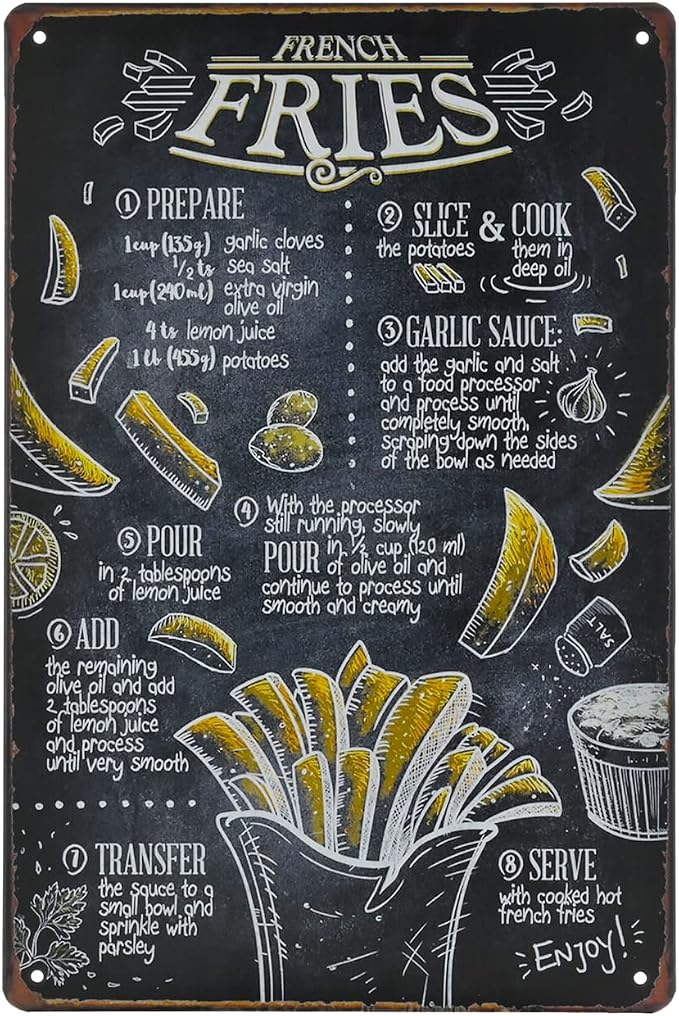 FRENCH
FRIES
1 PREPARE
1cup (135g) garlic cloves
1/2 ts sea salt
1cup (240ml) extra virgin
olive oil
4 ts lemon juice
1 lb (455g) potatoes
2 SLICE & COOK
the potatoes them in
deep oil
3 GARLIC SAUCE:
add the garlic and salt
to a food processor
and process until
completely smooth,
scraping down the sides
of the bowl as needed
4 With the processor
still running, slowly
POUR in 1/2 cup (120 ml)
of olive oil and
continue to process until
smooth and creamy
5 POUR
in 2 tablespoons
of lemon juice
6 ADD
the remaining
olive oil and add
2 tablespoons
of lemon juice
and process
until very smooth
SALT
7 TRANSFER
the sauce to a
small bowl and
sprinkle with
parsley
8 SERVE
with cooked hot
french fries
ENJOY!